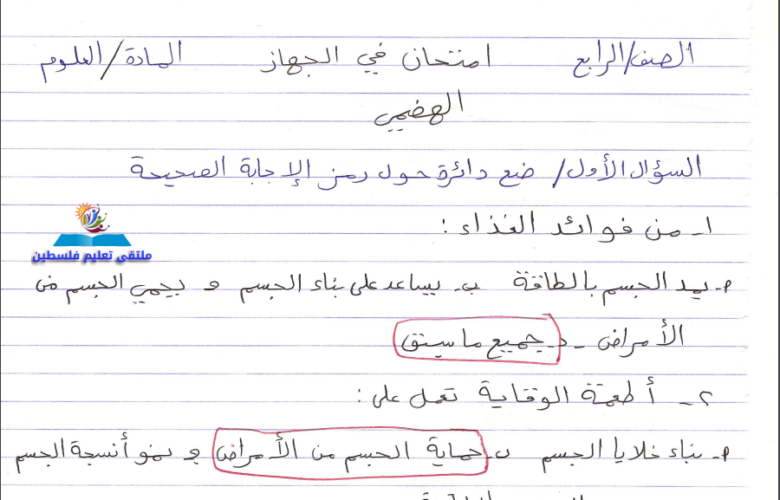 الصف/الرابع امتحان في الجهاز المادة/العلوم
الهضمي
السؤال الأول/ ضع دائرة حول رمز الإجابة الصحيحة
١- من فوائد الغذاء:
ملتقى تعليم فلسطين
م- يمد الجسم بالطاقة ب- يساعد على بناء الجسم و يحمي الجسم من
الأمراض - د- جميع ما سبق
٢- أطعمة الوقاية تعمل على:
م- بناء خلايا الجسم ب- حماية الجسم من الأمراض ج- نمو أنسجة الجسم